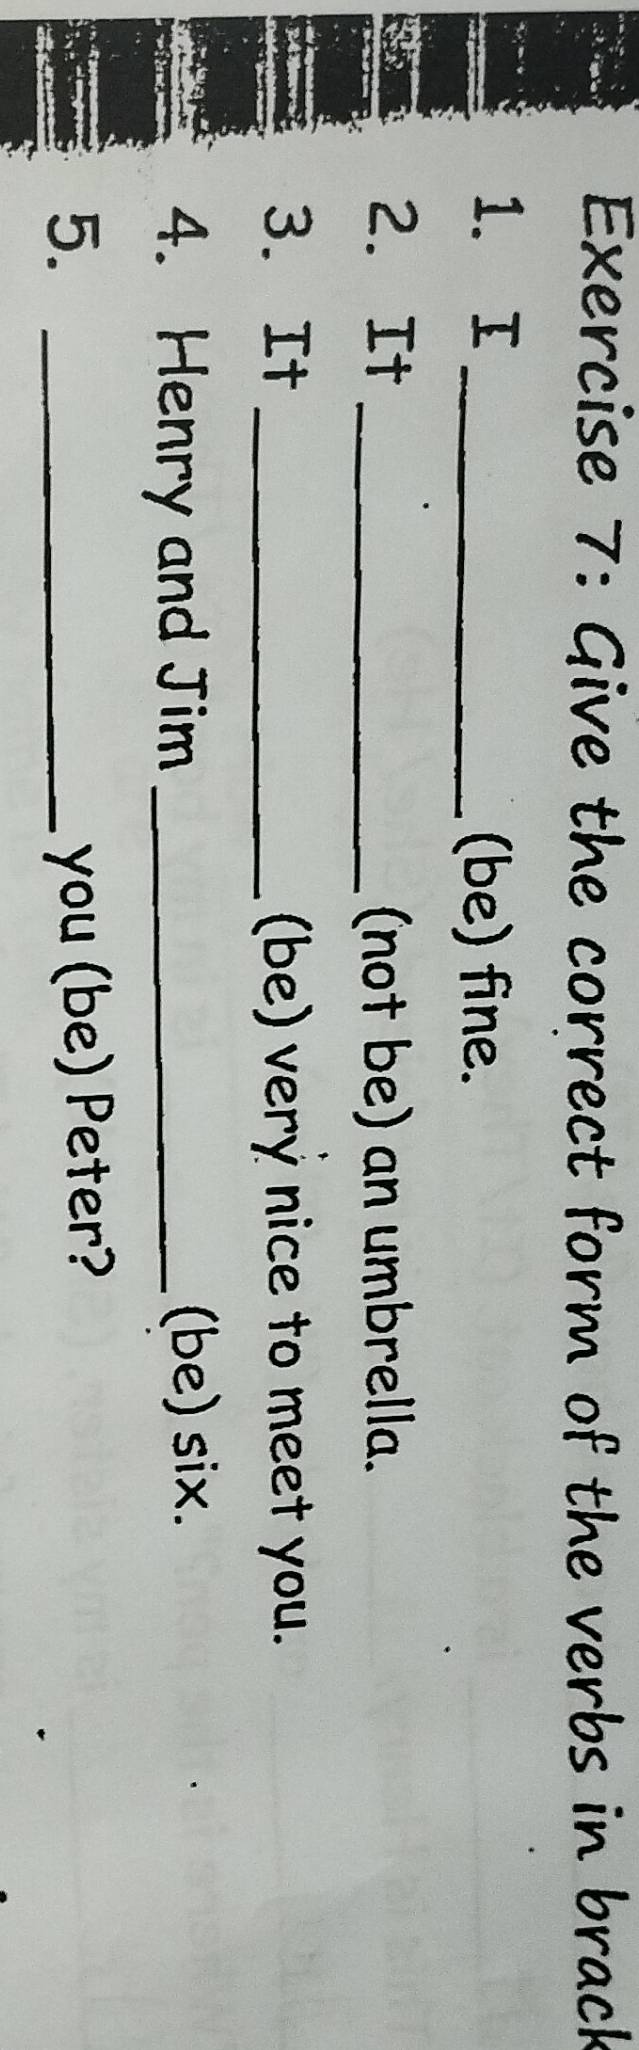 Exercise 7: Give the correct form of the verbs in brack
1. I __________ (be) fine.
2. It __________ (not be) an umbrella.
3. It __________ (be) very nice to meet you.
4. Henry and Jim __________ (be) six.
5. __________ you (be) Peter?